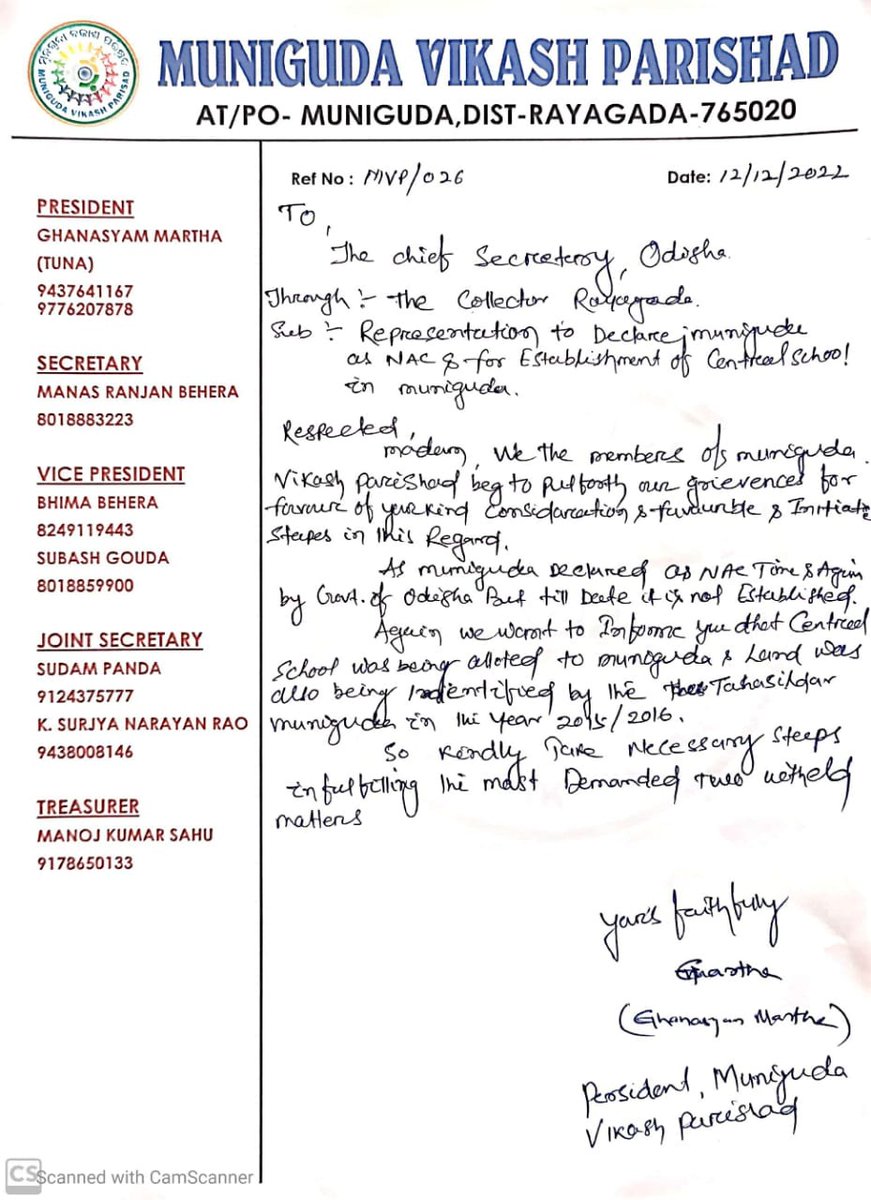 MUNIGUDA VIKASH PARISHAD
MUNIGUDA VIKASH PARISHAD
AT/PO- MUNIGUDA,DIST-RAYAGADA-765020
Ref No : MVP/026
Date: 12/12/2022
PRESIDENT
GHANASYAM MARTHA
(TUNA)
9437641167
9776207878
SECRETARY
MANAS RANJAN BEHERA
8018883223
VICE PRESIDENT
BHIMA BEHERA
8249119443
SUBASH GOUDA
8018859900
JOINT SECRETARY
SUDAM PANDA
9124375777
K. SURJYA NARAYAN RAO
9438008146
TREASURER
MANOJ KUMAR SAHU
9178650133
TO,
The chief Secretery, Odisha.
Through :- the Collector Rayagada.
Sub :- Representation to Declare muniguda
as NAC & for Establishment of Centreal School
in muniguda.
Respected,
madam, We the members of muniguda
Vikash Parishad beg to put forth our grievences for
favour of your kind Considareation & favourble & Initiate
Steapes in this Regard.
As muniguda Declared as NAC Time & Again
by Govt. of Odisha But till Deate it is not Established.
Again we want to Informe you that Centreal
School was being alloted to muniguda & Land was
also being Indentified by the Tahasildar
muniguda in the year 2015/2016.
So Kindly Take Necessary Steeps
in fulfilling the most Demanded two witheld
matters
Your's faithfully
(Ghanasyam Martha)
President, Muniguda
Vikash Parishad
CS Scanned with CamScanner